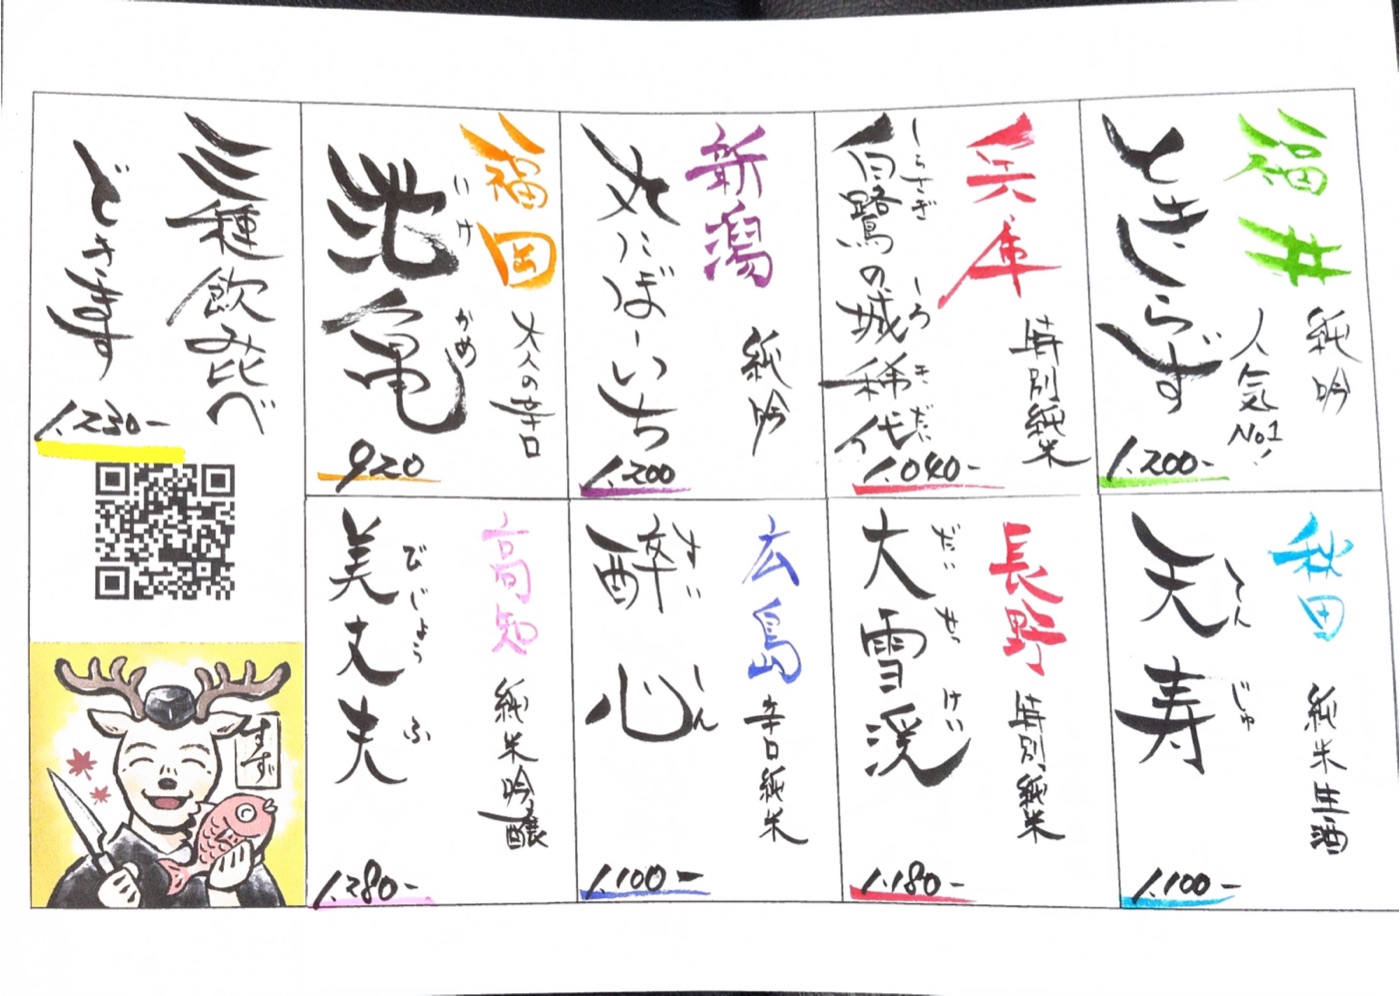 福井
純吟
人気No1!
ときしらず
1.200-
兵庫
特別純米
しらさぎ しろ きだい
白鷺の城 稀代
1.040-
新潟
純吟
〆にぼーいち
1.200
福岡
大人の辛口
いけ かめ
池亀
920
三種飲み比べ
できます
1.230-
秋田
純米生酒
てん じゅ
天寿
1.100-
長野
特別純米
だい せっ けい
大雪渓
1.180-
広島
辛口純米
すい しん
酔心
1.100-
高知
純米吟醸
びじょうふ
美丈夫
1.280-
すず